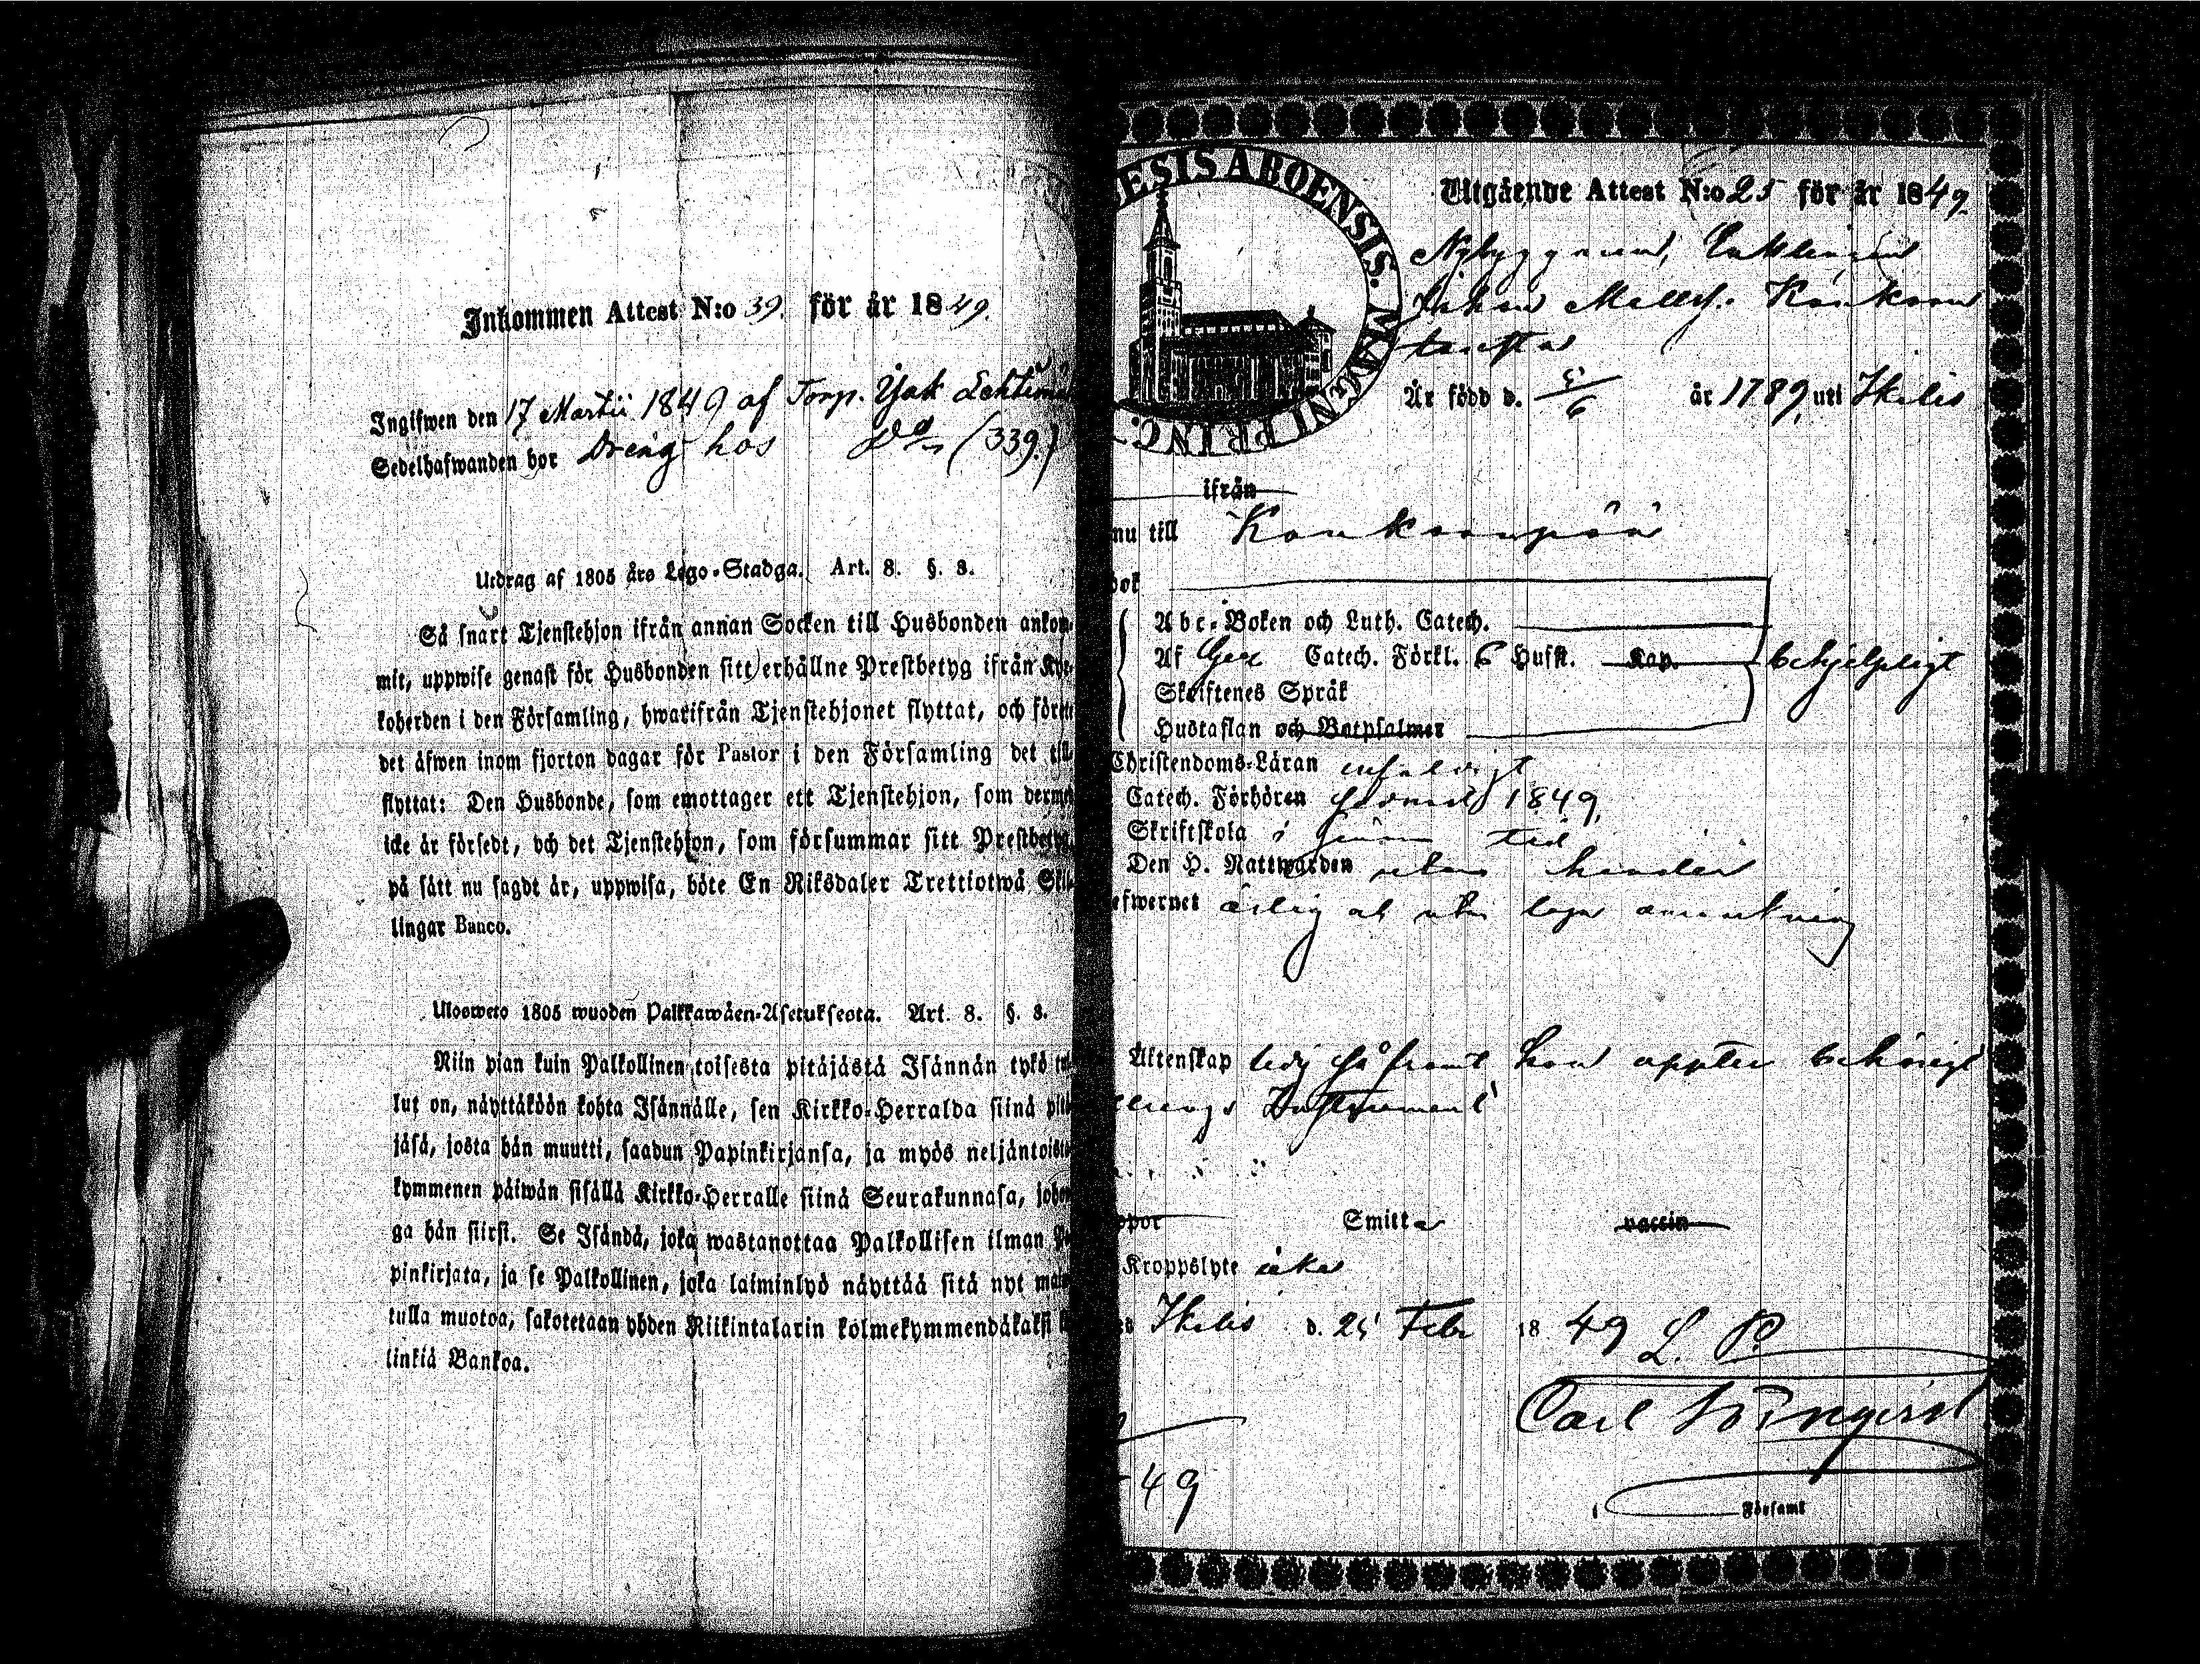 Inkommen Attest N:o 39. för år 1849.
Ingifwen den 17 Martii 1849 af Torp. Isak
Sedelhafwanden bor Dreng hos Do (339.)
Utdrag af 1805 års Lego-Stadga. Art. 8. §. 3.
Så snart Tjenstehjon ifrån annan Socken till Husbonden ankom-
mit, uppwise genast för Husbonden sitt erhållne Prestbetyg ifrån
koherden i den Församling, hwarifrån Tjenstehjonet flyttat, och
det äfwen inom fjorton dagar för Pastor i den Församling det
flyttat: Den Husbonde, som emottager ett Tjenstehjon, som
icke är försedt, och det Tjenstehjon, som försummar sitt
på sätt nu sagdt är, uppwisa, böte En Riksdaler Trettiotwå Skil-
lingar Banco.
Ulosweto 1805 wuoden Palkkawäen-Asetuksesta. Art. 8. §. 3.
Niin pian kuin Palkollinen toisesta pitäjästä Isännän tykö
lut on, näyttäköön kohta Isännälle, sen Kirkko-Herralda siinä
jäsä, josta hän muutti, saadun Papinkirjansa, ja myös
kymmenen päiwän sisällä Kirkko-Herralle siinä Seurakunnasa,
ga hän siirst. Se Isändä, joka wastanottaa Palkollisen ilman
pinkirjata, ja se Palkollinen, joka laiminlyö näyttää sitä nyt
tulla muotoa, sakotetaan yhden Riikintalarin kolmekymmendäkaksi
linkiä Bankoa.
ESIS ABOENSIS. MAGNI PRINC.
Utgående Attest N:o 25 för år 1849
Johan
Är född d. 5/6 år 1789, uti Ikalis
ifrån
nu till
bok
Abc-Boken och Luth. Catech.
Af Catech. Förkl. 6 Hufst. Kap. behjelpligt
Skriftenes Språk
Hustaflan och Botpsalmer
Christendoms-Läran enfaldigt
Catech. Förhören 1849.
Skriftskola i sinom tid
Den H. Nattwarden utan hinder
efwernet ärlig och utan laga anmärkning
Äktenskap ledig så framt han uppter behörigt
Instrument
ppor Smitta vaccin
Kroppslyte icke
Ikalis d. 25 Febr 1849 L. P.
Carl
49
Församl